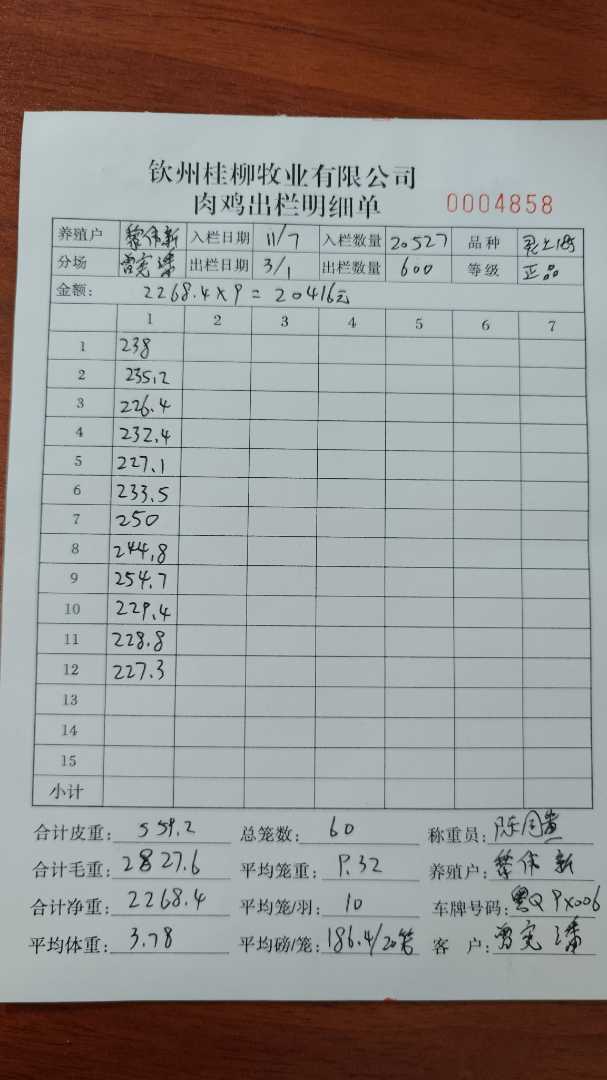 钦州桂柳牧业有限公司
肉鸡出栏明细单 0004858
养殖户 黎伟新 入栏日期 11/7 入栏数量 20527 品种
分场 出栏日期 3/1 出栏数量 600 等级 正品
金额: 2268.4×9=20416元
1 2 3 4 5 6 7
1 238
2 235.2
3 226.4
4 232.4
5 227.1
6 233.5
7 250
8 244.8
9 254.7
10 229.4
11 228.8
12 227.3
13
14
15
小计
合计皮重: 559.2 总笼数: 60 称重员:
合计毛重: 2827.6 平均笼重: 9.32 养殖户: 黎伟新
合计净重: 2268.4 平均笼/羽: 10 车牌号码:
平均体重: 3.78 平均磅/笼: 186.4/20笼 客户: